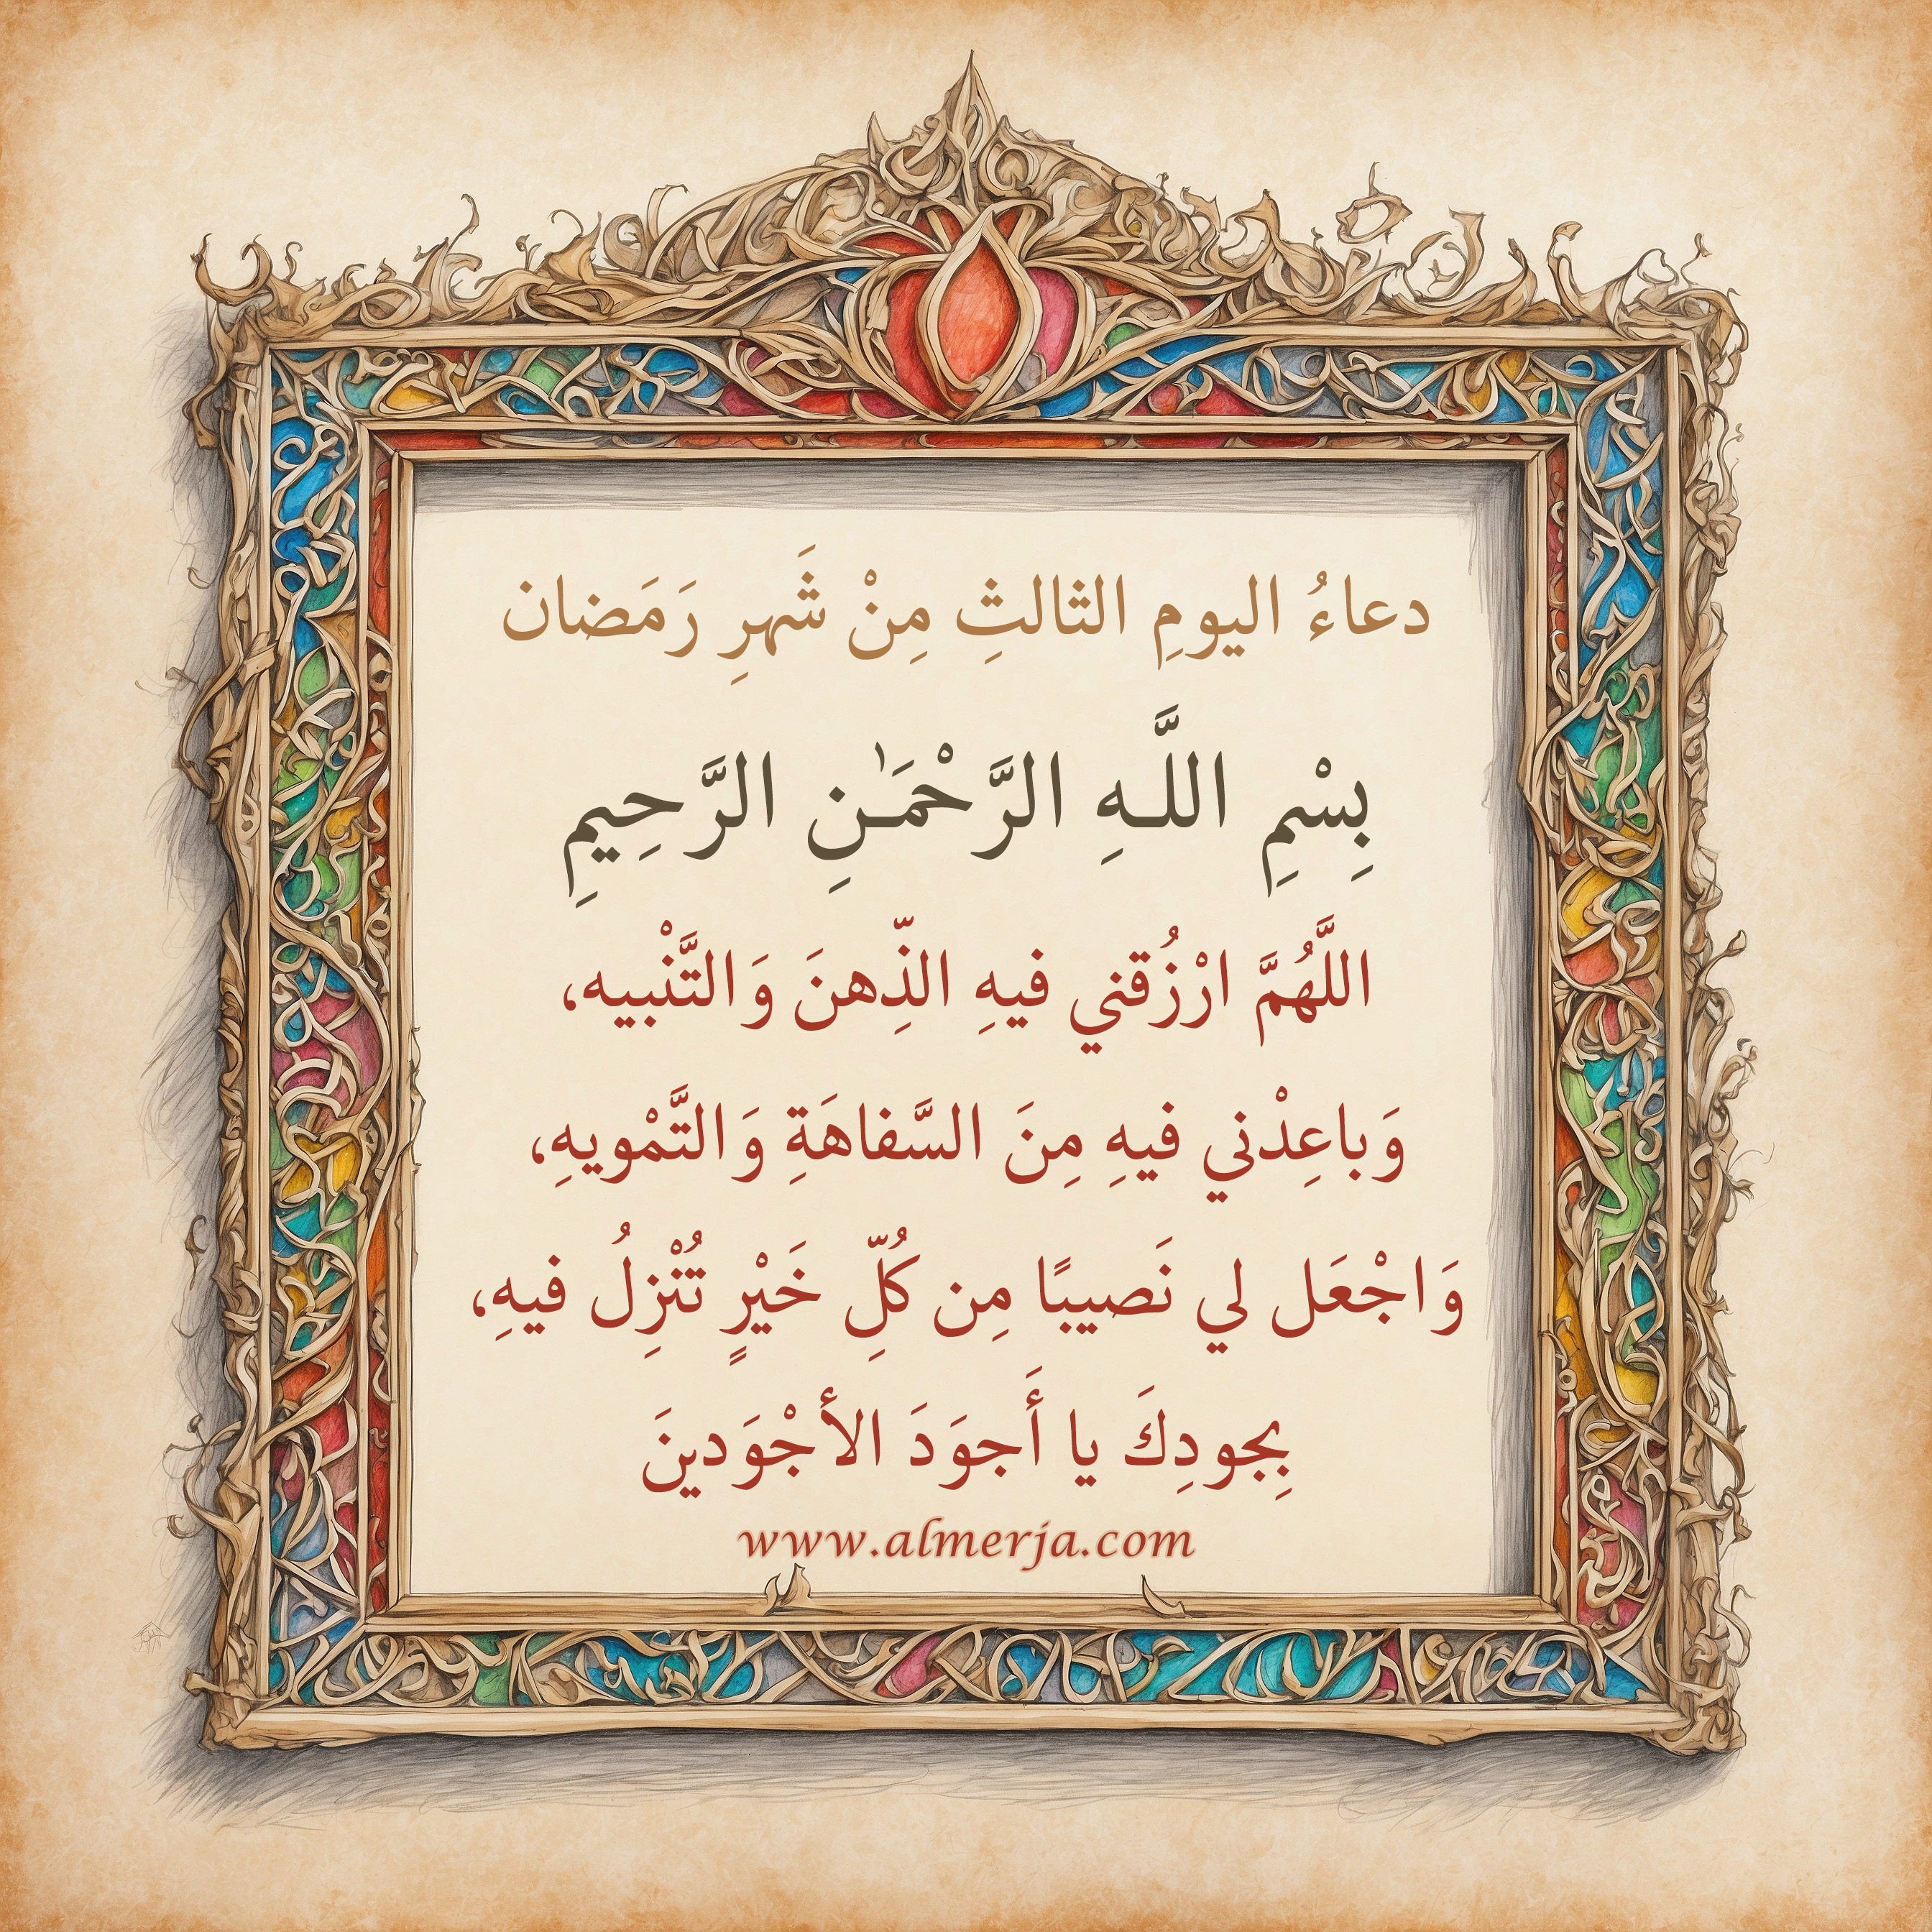 دعاءُ اليومِ الثالثِ مِنْ شَهرِ رَمَضان
بِسْمِ اللَّـهِ الرَّحْمَـٰنِ الرَّحِيمِ
اللَّهُمَّ ارْزُقني فيهِ الذِّهنَ وَالتَّنْبيه،
وَباعِدْني فيهِ مِنَ السَّفاهَةِ وَالتَّمْويهِ،
وَاجْعَل لي نَصيبًا مِن كُلِّ خَيْرٍ تُنْزِلُ فيهِ،
بِجودِكَ يا أَجوَدَ الأجْوَدينَ
www.almerja.com